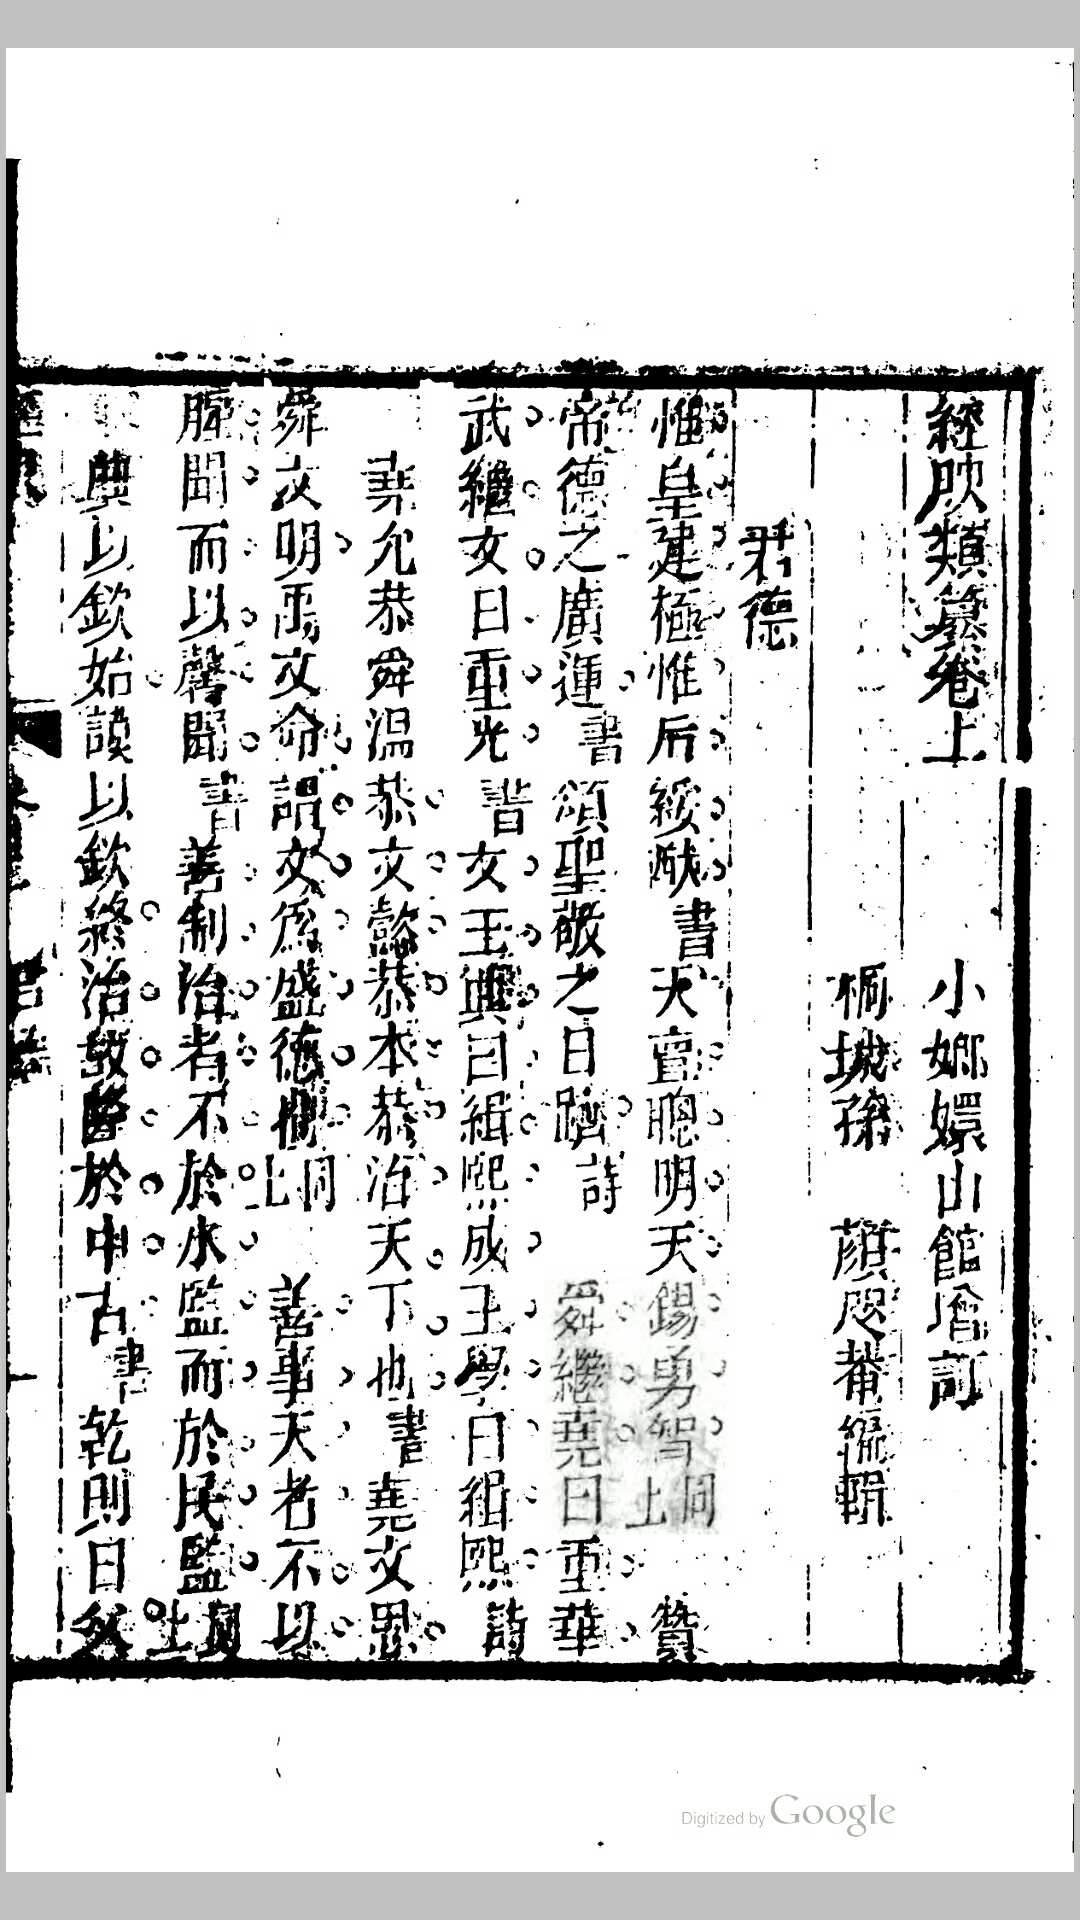 經腴類纂卷上　小嫏嬛山館增訂
桐城孫　顏咫菴編輯
君德
惟皇建極惟后綏猷書天亶聰明天錫勇智同上贊
帝德之廣運書頌聖敬之日躋詩　舜繼堯曰重華
武繼文曰重光書文王興曰緝熙成王學曰緝熙詩
堯允恭舜温恭文懿恭本恭治天下也書堯文思
舜文明禹文命謂文為盛德同上　善事天者不以
腥聞而以馨聞書善制治者不於水監而於民監同上
典以欽始謨以欽終治效於中古書乾則曰
Digitized by Google